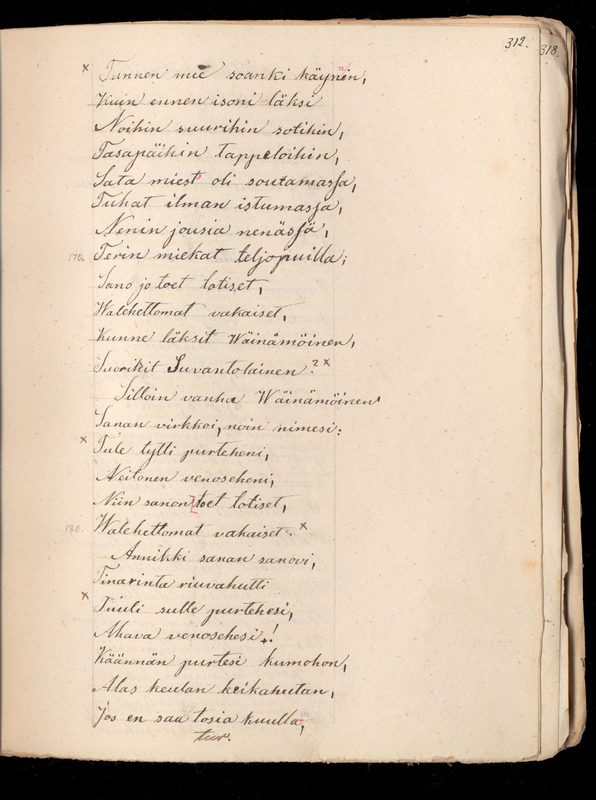 312. 318
× Tunnen mie soanki käynin,
Kuin ennen isoni läksi
Noihin suurihin sotihin,
Tasapäihin tappeloihin,
Sata miest oli soutamassa,
Tuhat ilman istumassa,
Nenin jousia nenässä,
170. Terin miekat teljopuilla;
Sano jo toet totiset,
Walehettomat vakaiset,
Kunne läksit Wäinämöinen,
Suorikit Suvantolainen? ×
Silloin vanha Wäinämöinen
Sanan virkkoi, noin nimesi:
× Tule tytti purteheni,
Neitonen venoseheni,
Niin sanon toet totiset,
180. Walehettomat vakaiset. ×
Annikki sanan sanovi,
Tinarinta riuvahutti
× Tuuli sulle purtehesi,
Ahava venosehesi!
Käännän purtesi kumohon,
Alas keulan keikahutan,
Jos en saa tosia kuulla,